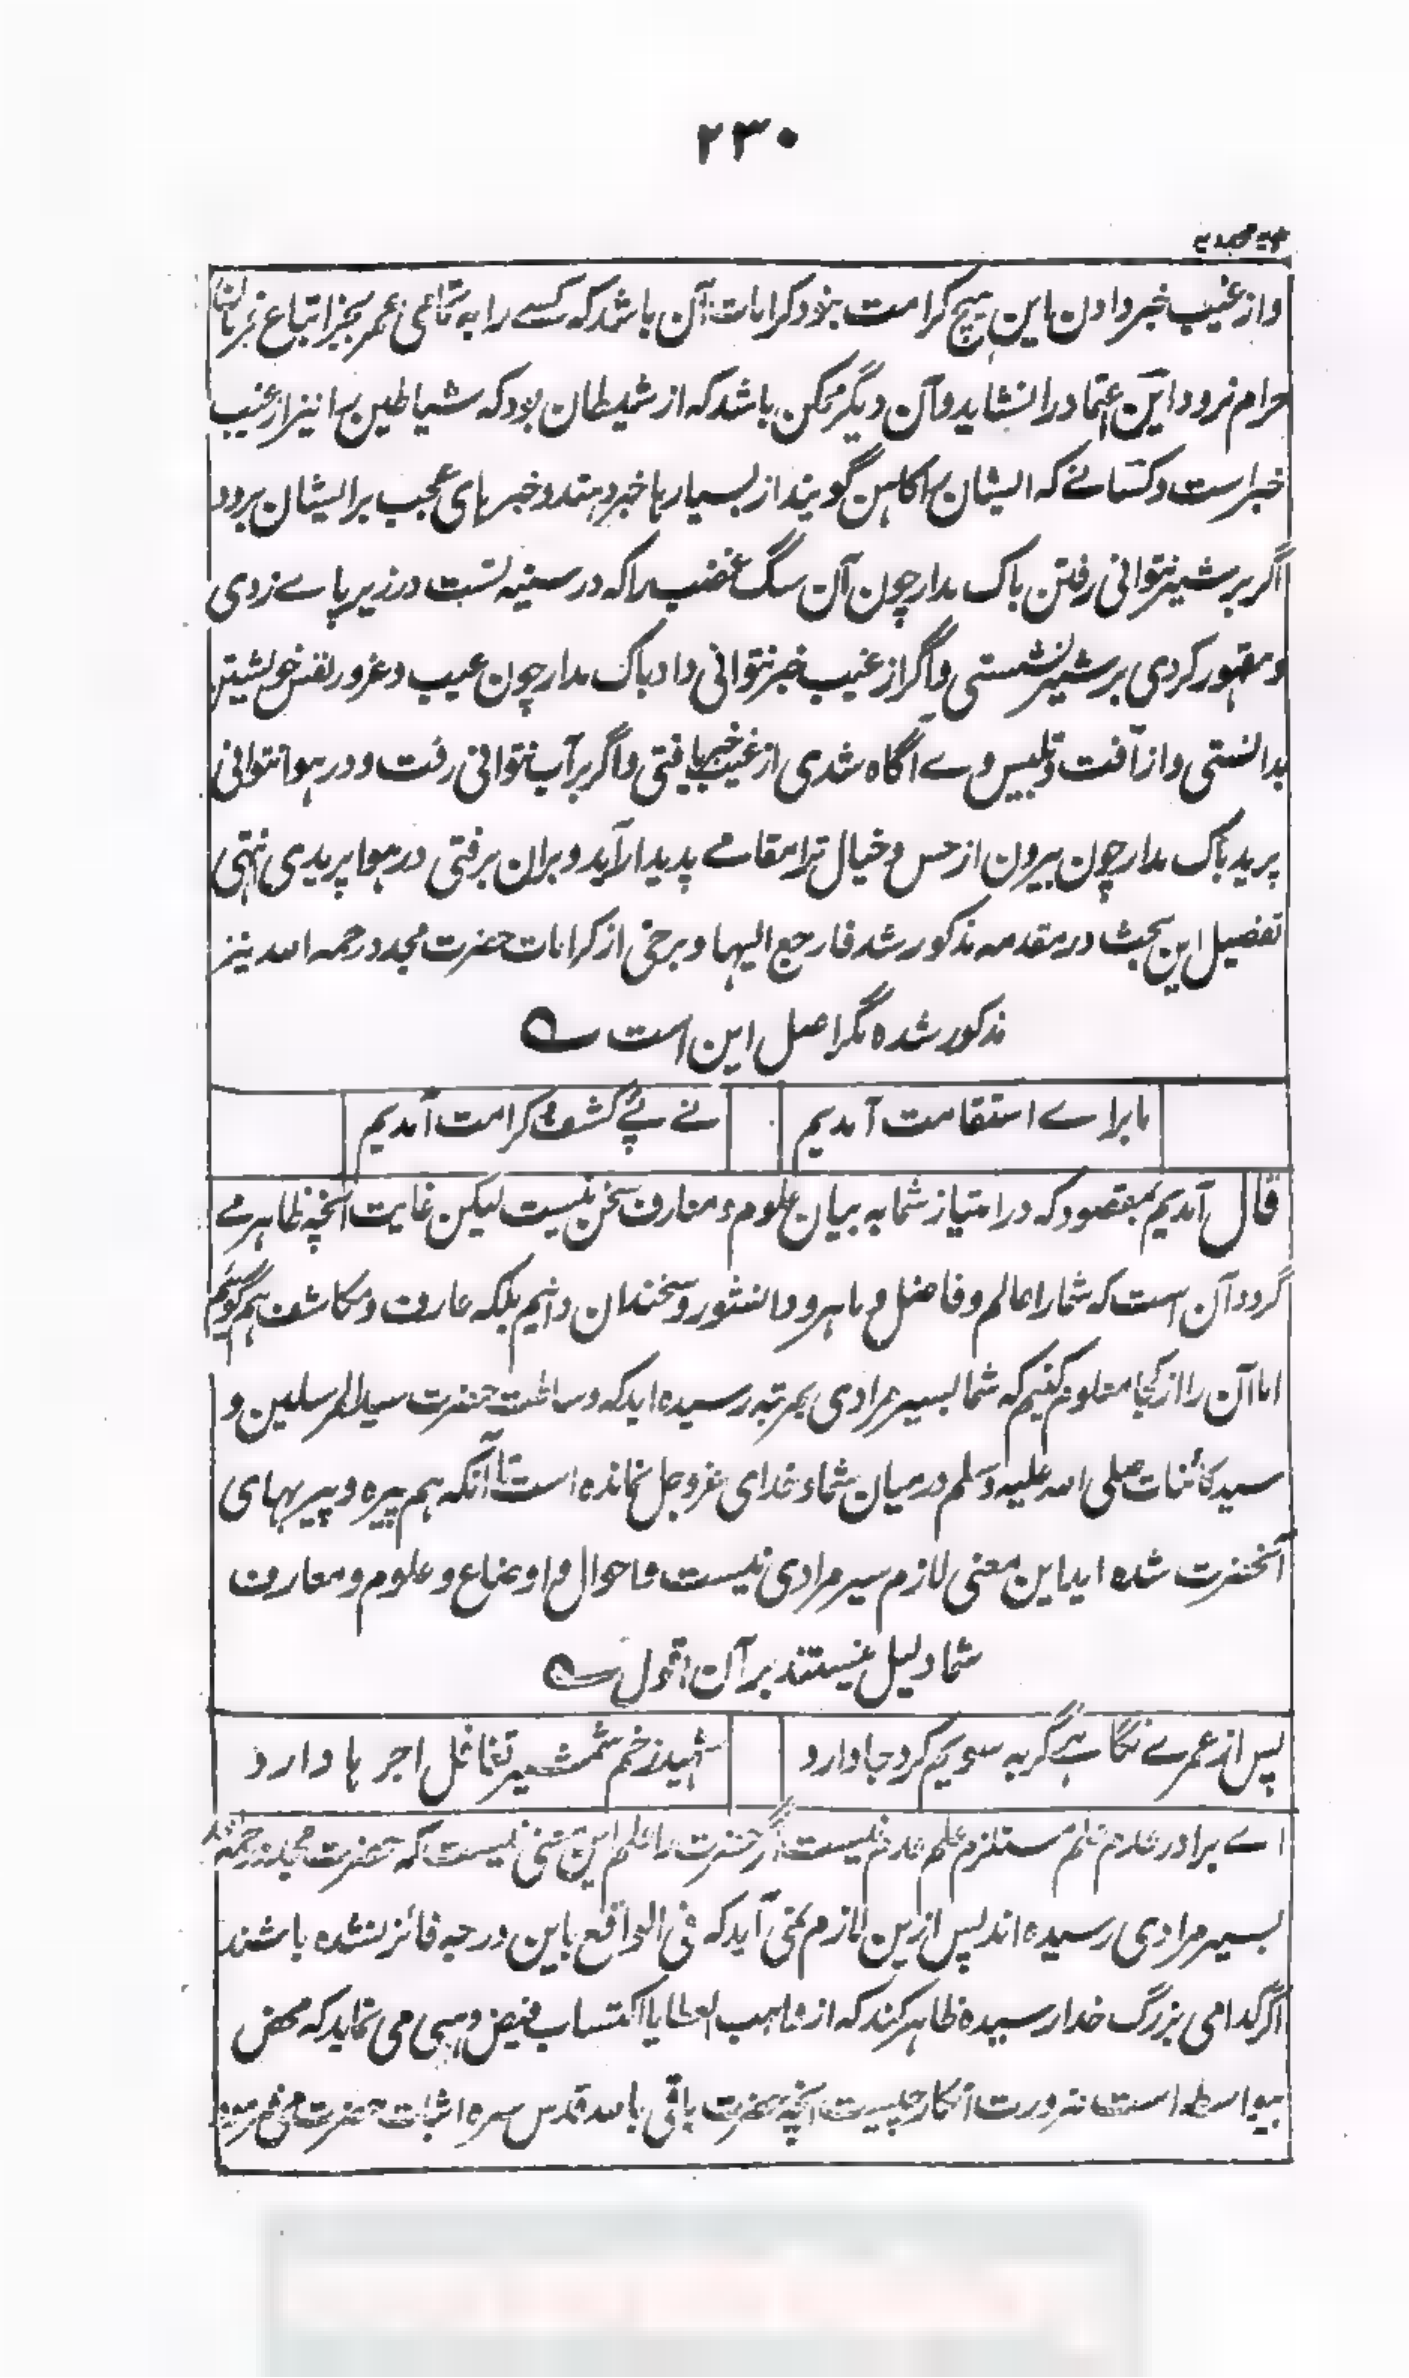 ۲۳۰
و از غیب خبر دادن این هیچ کرامت نبود کرامات آن باشد که کسے را به تمامی عمر بجز اتباع فرمان
حرام نرود این اعتماد را نشاید و آن دیگر ممکن باشد که از شیطان بود که شیاطین را نیز از غیب
خبر است و کسانے که ایشان را کاهن گویند از بسیارها خبر دهند و خبر های عجب بر ایشان برود
اگر بر شیر نتوانی رفتن باک مدار چون آن سگ غضب را که در سینه تست در زیر پاے زدی
و مقهور کردی بر شیر نشستی و اگر از غیب خبر نتوانی داد باک مدار چون عیب و غرور نفس خویشتن
بدانستی و از آفت و تلبیس وے آگاه شدی از غیب خبر یافتی و اگر بر آب نتوانی رفت و در هوا نتوانی
پرید باک مدار چون بیرون از حس و خیال ترا مقامے پدیدار آید و بران برفتی در هوا پریدی انتهی
تفصیل این بحث در مقدمه مذکور شد فارجع الیها و برخی از کرامات حضرت مجدد رحمه الله نیز
مذکور شده مگر اصل این است
ما براے استقامت آمدیم نے پئے کشف و کرامت آمدیم
قال آمدیم بمقصود که در امتیاز شما به بیان علوم و معارف سخن نیست لیکن غایت آنچه ظاهر مے
گردد آن است که شما را عالم و فاضل و ماهر و دانشور و سخندان دانیم بلکه عارف و مکاشف هم گوئیم
اما آن را از کجا معلوم کنیم که شما بسیر مرادی بمرتبه رسیده اید که وساطت حضرت سید المرسلین و
سید کائنات صلی الله علیه وسلم در میان شما و خدای عز و جل نمانده است تا آنکه هم پیره و پیر بهای
آنحضرت شده اید این معنی لازم سیر مرادی نیست و احوال و اوضاع و علوم و معارف
شما دلیل نیستند بر آن اقول
پس از عمرے نگاهے گر به سویم کرد جا دارد شهید زخم شمشیر تغافل اجر ها دارد
اے برادر عدم علم مستلزم علم عدم نیست اگر حضرت را علم این معنی نیست که حضرت مجدد رحمه الله
بسیر مرادی رسیده اند پس ازین لازم نمی آید که فی الواقع باین درجه فائز نشده باشند
اگر کدامی بزرگ خدا رسیده ظاهر کند که از واهب العطایا اکتساب فیض وهبی می نماید که محض
بیواسطه است ضرورت انکار چیست آنچه حضرت باقی بالله قدس سره اثبات حضرت